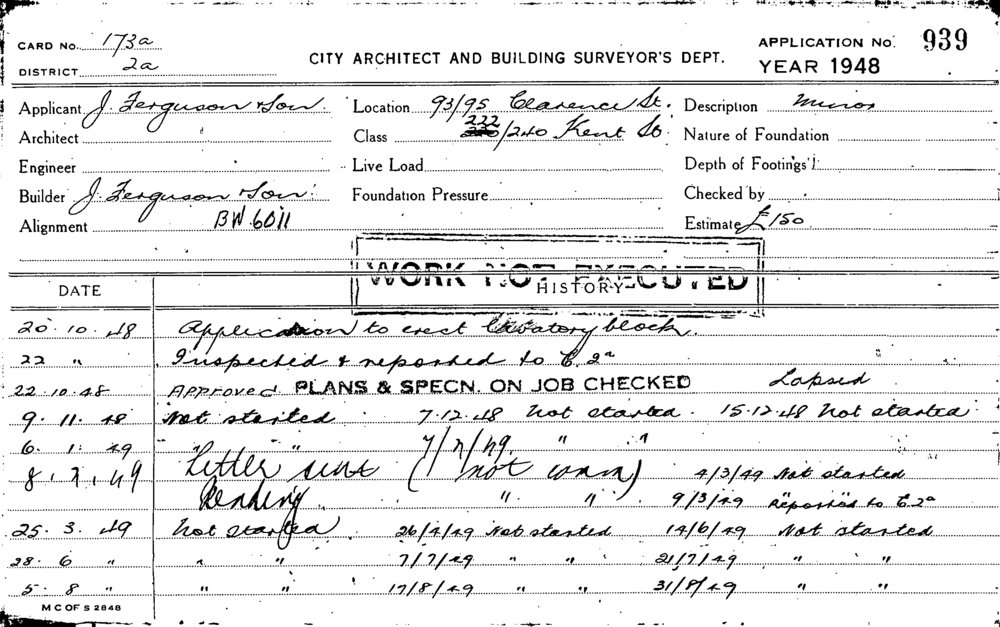 CARD No. 173a
DISTRICT 2a
CITY ARCHITECT AND BUILDING SURVEYOR'S DEPT.
APPLICATION No. 939
YEAR 1948
Applicant J. Ferguson & Son. Location 93/95 Clarence St. Description Minor
Architect Class 222/240 Kent St. Nature of Foundation
Engineer Live Load Depth of Footings
Builder J. Ferguson & Son. Foundation Pressure Checked by
Alignment BW.6011 Estimate £150
WORK NOT EXECUTED
DATE HISTORY
20.10.48 Application to erect lavatory block.
22 " Inspected & reported to C.2a
22.10.48 APPROVED PLANS & SPECN. ON JOB CHECKED Lapsed
9.11.48 Not started 7.12.48 Not started. 15.12.48 Not started
6.1.49 " " 7/2/49 " "
8.2.49 Letter sent (not comm) 4/3/49 Not started
Pending " " 9/3/49 Reported to C.2a
25.3.49 Not started 26/4/49 Not started 14/6/49 Not started
28.6 " " " 7/7/49 " " 21/7/49 " "
5.8 " " " 17/8/49 " " 31/8/49 " "
M C OF S 2848